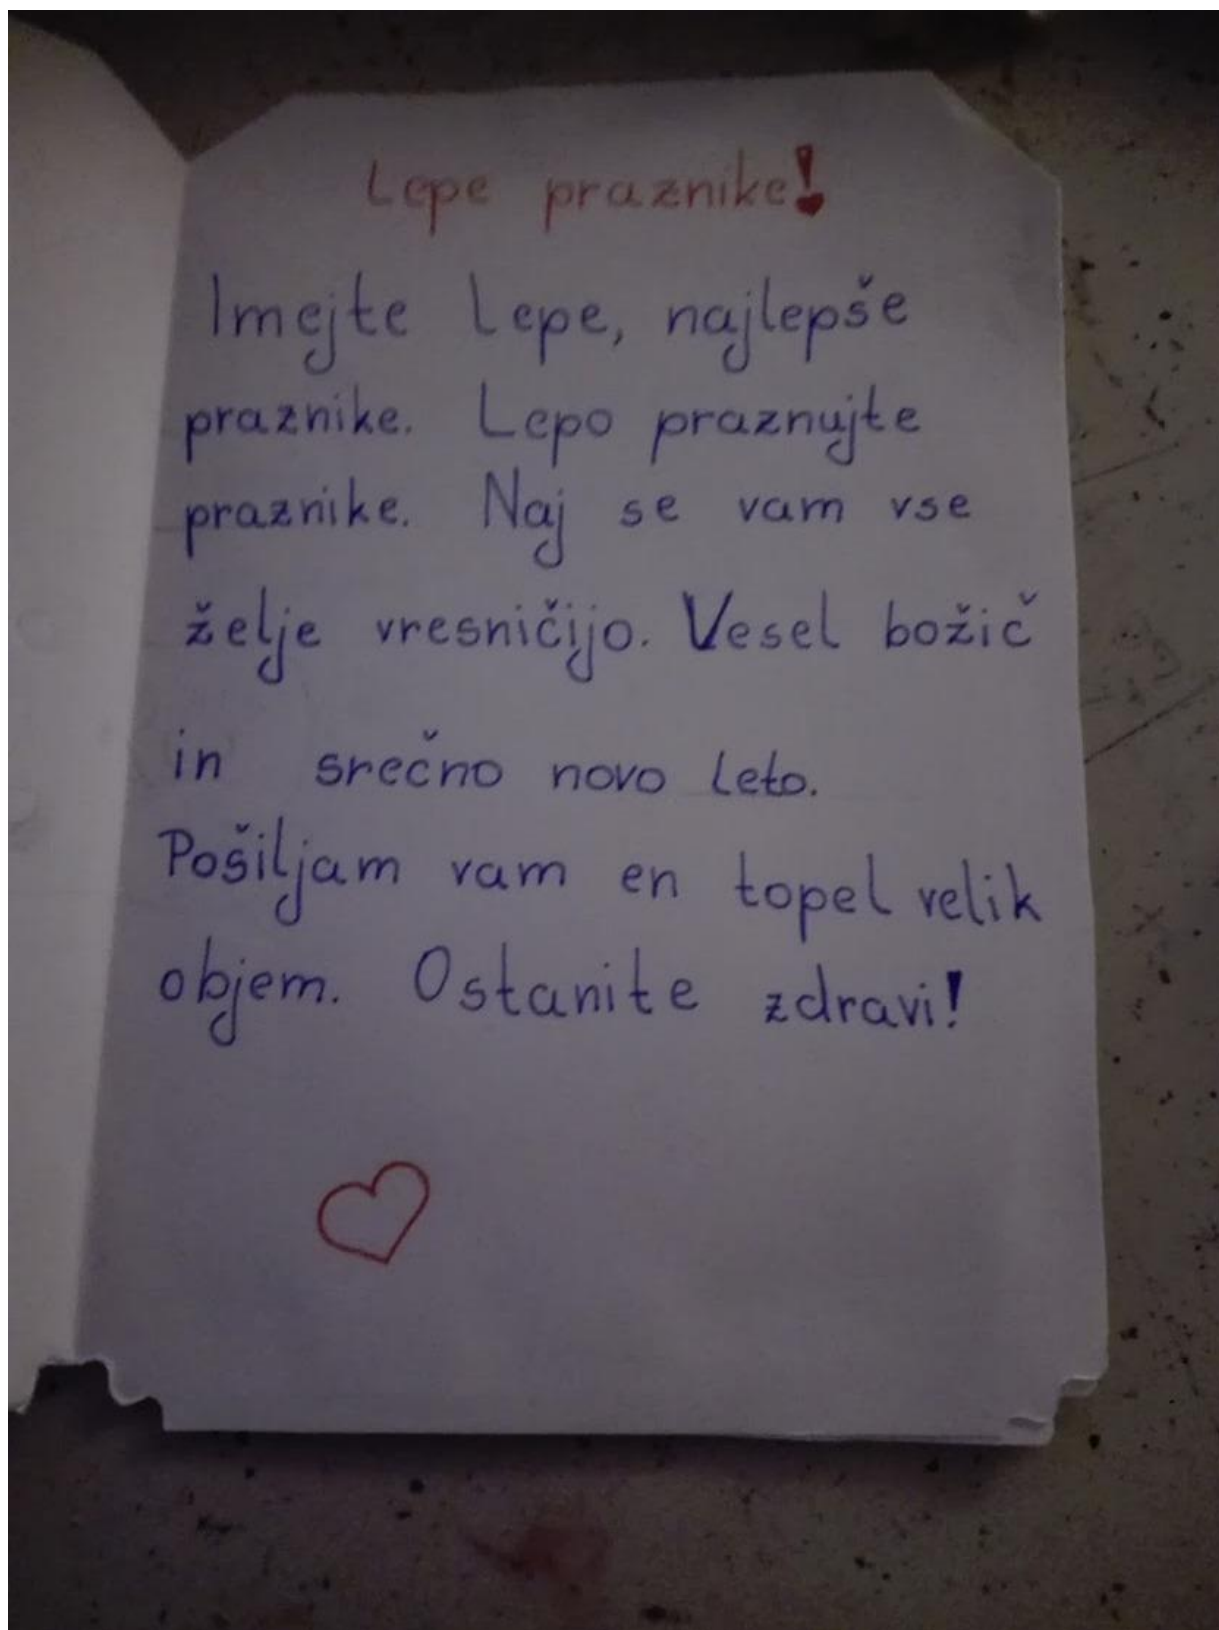 Lepe praznike!
Imejte lepe, najlepše
praznike. Lepo praznujte
praznike. Naj se vam vse
želje vresničijo. Vesel božič
in srečno novo leto.
Pošiljam vam en topel velik
objem. Ostanite zdravi!